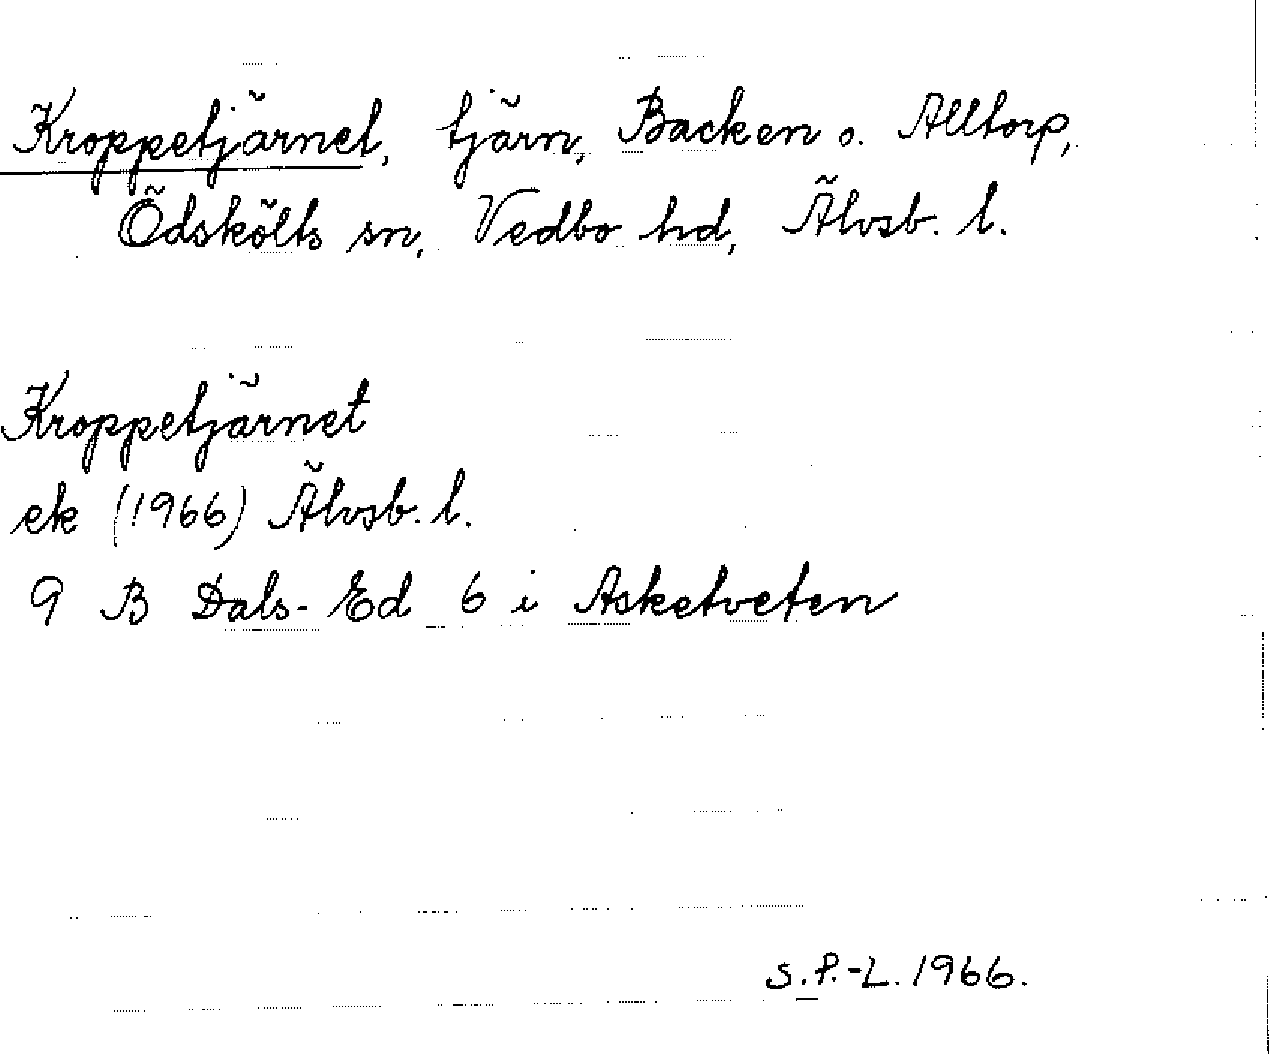 Kroppetjärnet, tjärn, Backen o. Alltorp,
Ödskölts sn, Vedbo hd, Älvsb. l.
Kroppetjärnet
ek (1966) Älvsb. l.
9 B Dals-Ed 6 i Asketveten
S.P.-L. 1966.